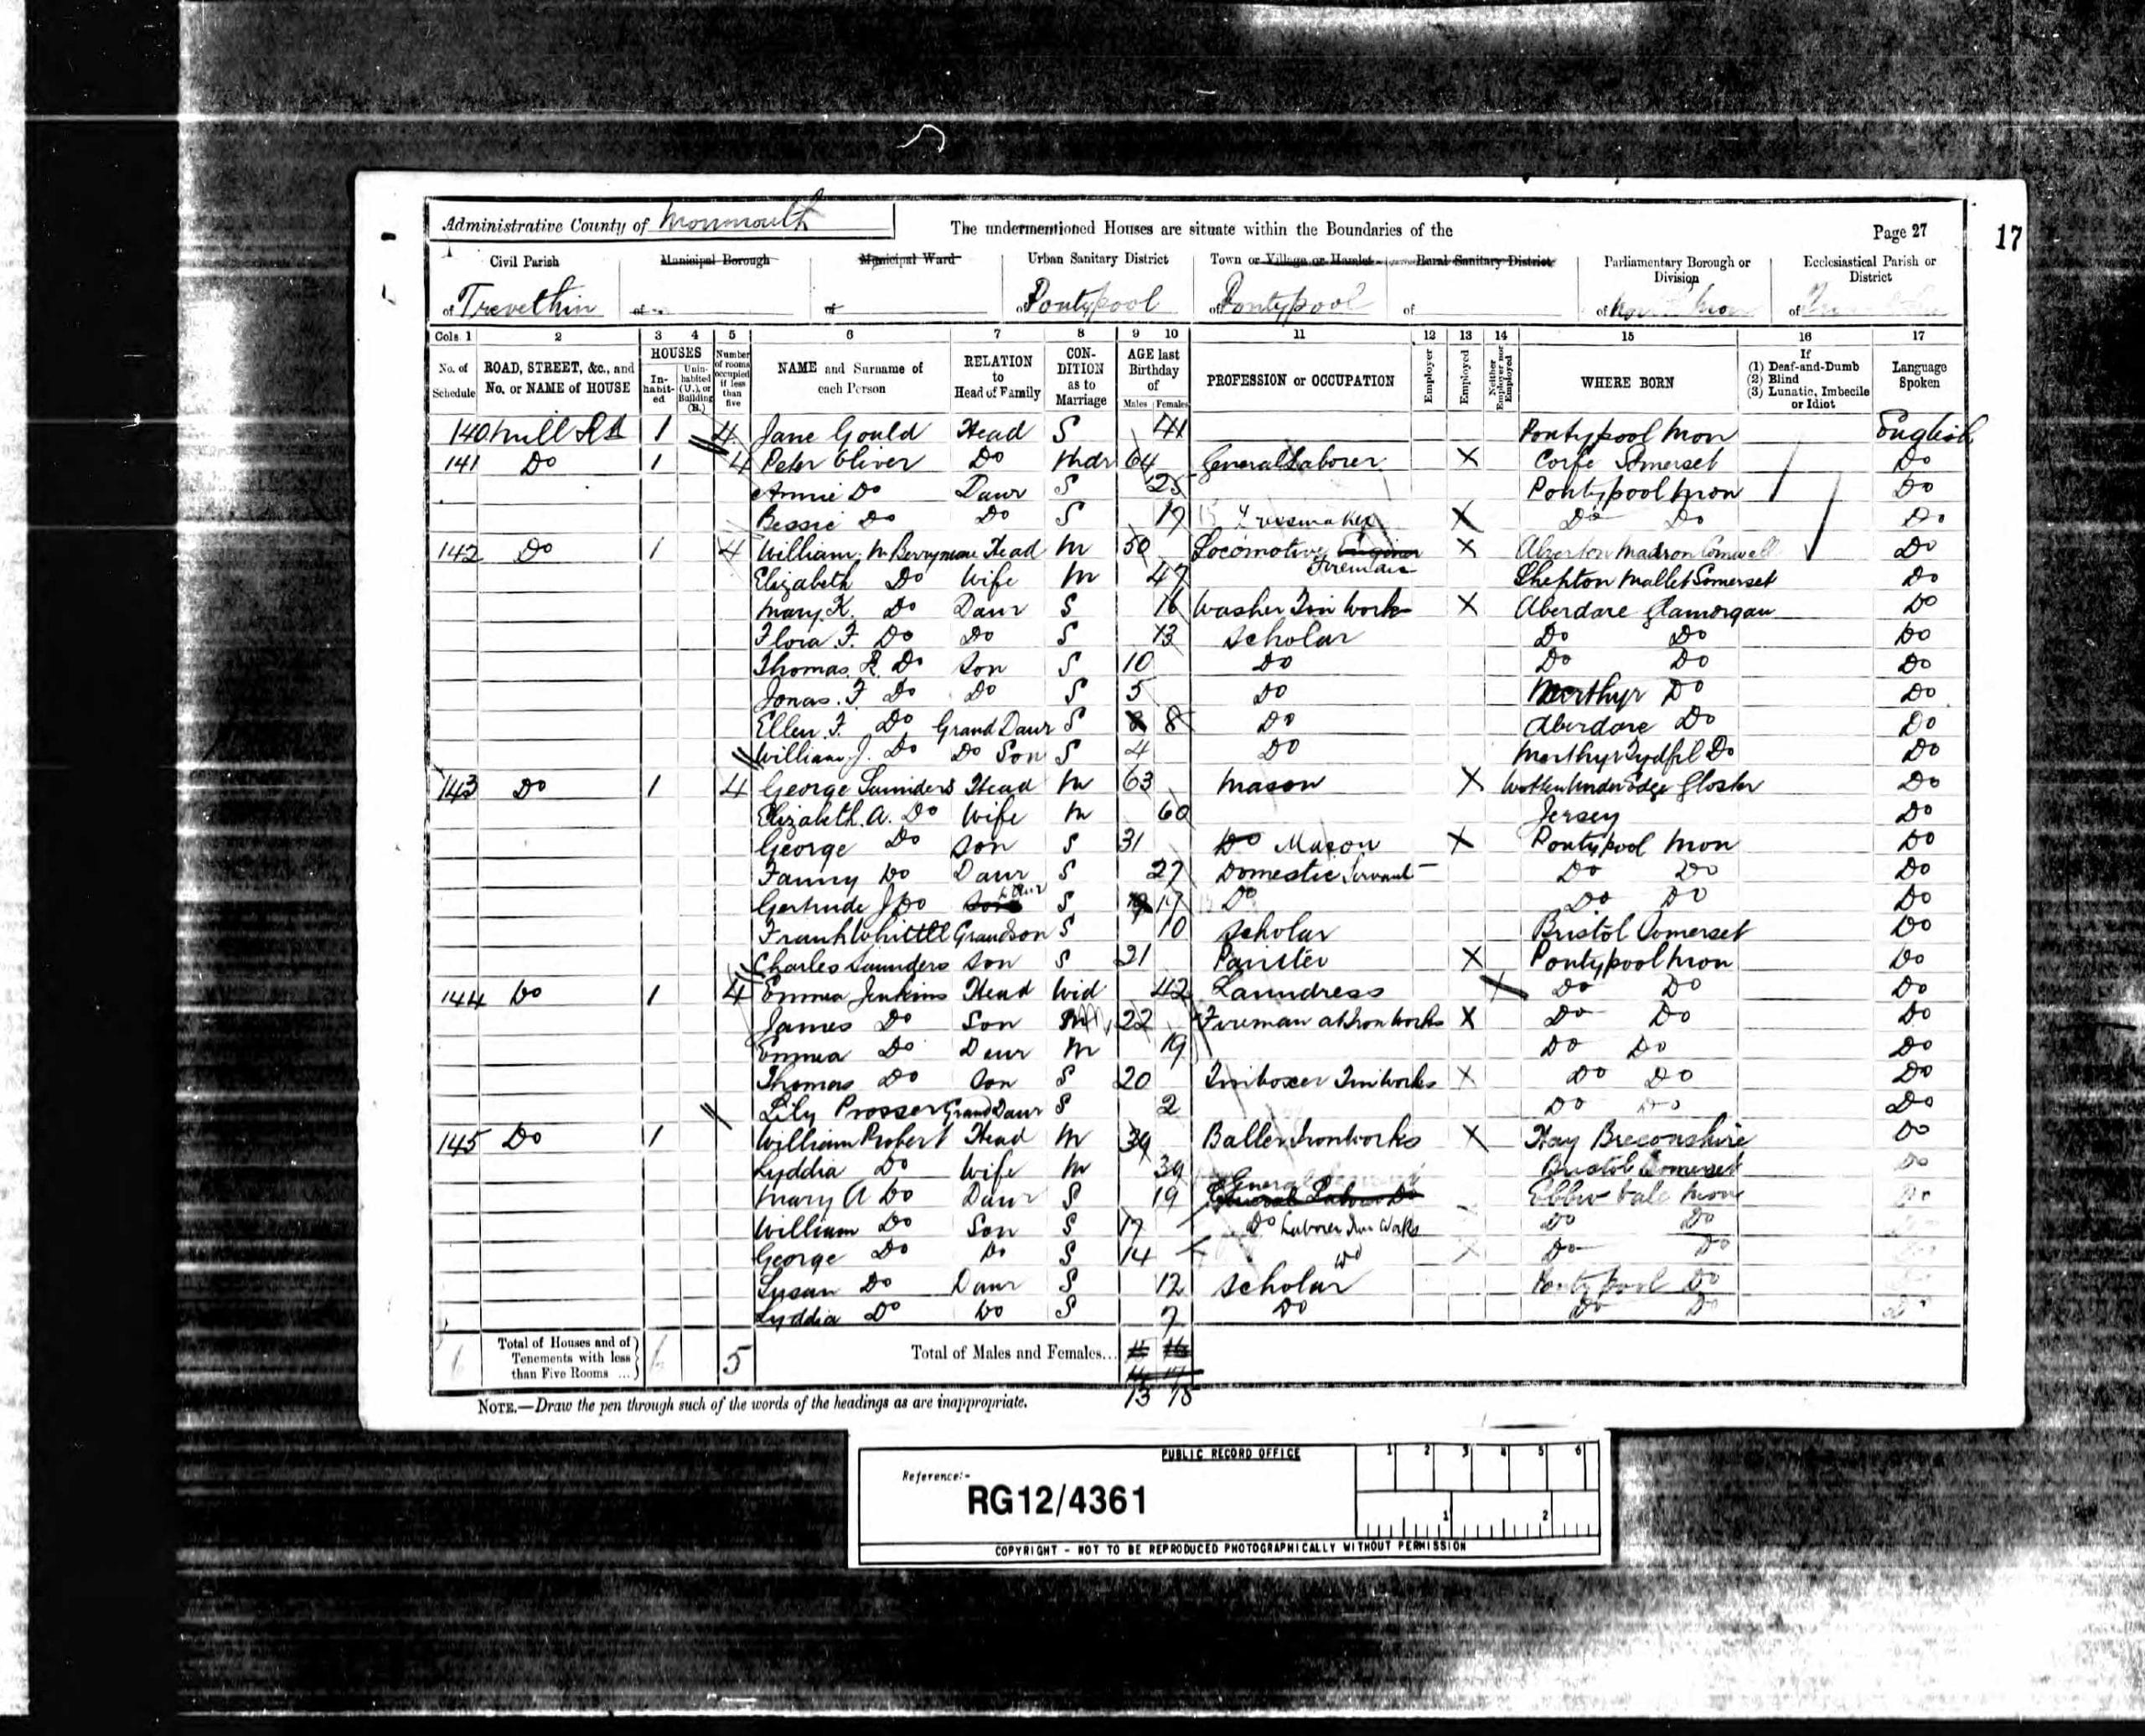 Administrative County of Monmouth
The undermentioned Houses are situate within the Boundaries of the
Page 27
17
Civil Parish
of Trevethin
Municipal Borough
of
Municipal Ward
of
Urban Sanitary District
of Pontypool
Town or Village or Hamlet
of Pontypool
Rural Sanitary District
of
Parliamentary Borough or Division
of
Ecclesiastical Parish or District
of
Cols. 1 2 3 4 5 6 7 8 9 10 11 12 13 14 15 16 17
No. of Schedule
ROAD, STREET, &c., and No. or NAME of HOUSE
HOUSES
In-habit-ed
Unin-habited (U.), or Building (B.)
Number of rooms occupied if less than five
NAME and Surname of each Person
RELATION to Head of Family
CON-DITION as to Marriage
AGE last Birthday of
Males Females
PROFESSION or OCCUPATION
Employer
Employed
Neither Employer nor Employed
WHERE BORN
If
(1) Deaf-and-Dumb
(2) Blind
(3) Lunatic, Imbecile or Idiot
Language Spoken
140 Mill Rd 1 4 Jane Gould Head S 41 Pontypool Mon English
141 Do 1 4 Peter Oliver Do Wdr 64 General Laborer X Corfe Somerset Do
Annie Do Daur S 25 Pontypool Mon Do
Bessie Do Do S 19 Dressmaker X Do Do Do
142 Do 1 4 William M Berryman Head M 50 Locomotive Engineer Fireman X Alverton Madron Cornwall Do
Elizabeth Do Wife M 47 Shepton Mallet Somerset Do
Mary K. Do Daur S 16 Washer Tin Work X Aberdare Glamorgan Do
Flora F. Do Do S 13 Scholar Do Do Do
Thomas R. Do Son S 10 Do Do Do Do
Jonas. F. Do Do S 5 Do Merthyr Do Do
Ellen F. Do Grand Daur S 8 8 Do Aberdare Do Do
William J. Do Do Son S 4 Do Merthyr Tydfil Do Do
143 Do 1 4 George Saunders Head M 63 Mason X Wotten Under Edge Gloster Do
Elizabeth A. Do Wife M 60 Jersey Do
George Do Son S 31 Do Mason X Pontypool Mon Do
Fanny Do Daur S 27 Domestic Servant Do Do Do
Gertrude J Do Son Daur S 17 Do Do Do Do
Frank Whittle Grandson S 10 Scholar Bristol Somerset Do
Charles Saunders Son S 21 Painter X Pontypool Mon Do
144 Do 1 4 Emma Jenkins Head Wid 42 Laundress X Do Do Do
James Do Son M 22 Fireman at Iron Works X Do Do Do
Emma Do Daur M 19 Do Do Do
Thomas Do Son S 20 Tinboxer Tinworks X Do Do Do
Lily Prosser Grand Daur S 2 Do Do Do
145 Do 1 William Probert Head M 39 Baller Ironworks X Hay Breconshire Do
Lyddia Do Wife M 39 Bristol Somerset Do
Mary A Do Daur S 19 General Ebbw Vale Mon Do
William Do Son S 17 Do Laborer Iron Works Do Do
George Do Do S 14 X Do Do
Susan Do Daur S 12 Scholar Pontypool Do
Lyddia Do Do S 7 Do Do Do Do
Total of Houses and of Tenements with less than Five Rooms ... 6 5
Total of Males and Females...
13 18
NOTE.—Draw the pen through such of the words of the headings as are inappropriate.
PUBLIC RECORD OFFICE
1 2 3 4 5 6
Reference:-
RG12/4361
1 2
COPYRIGHT - NOT TO BE REPRODUCED PHOTOGRAPHICALLY WITHOUT PERMISSION